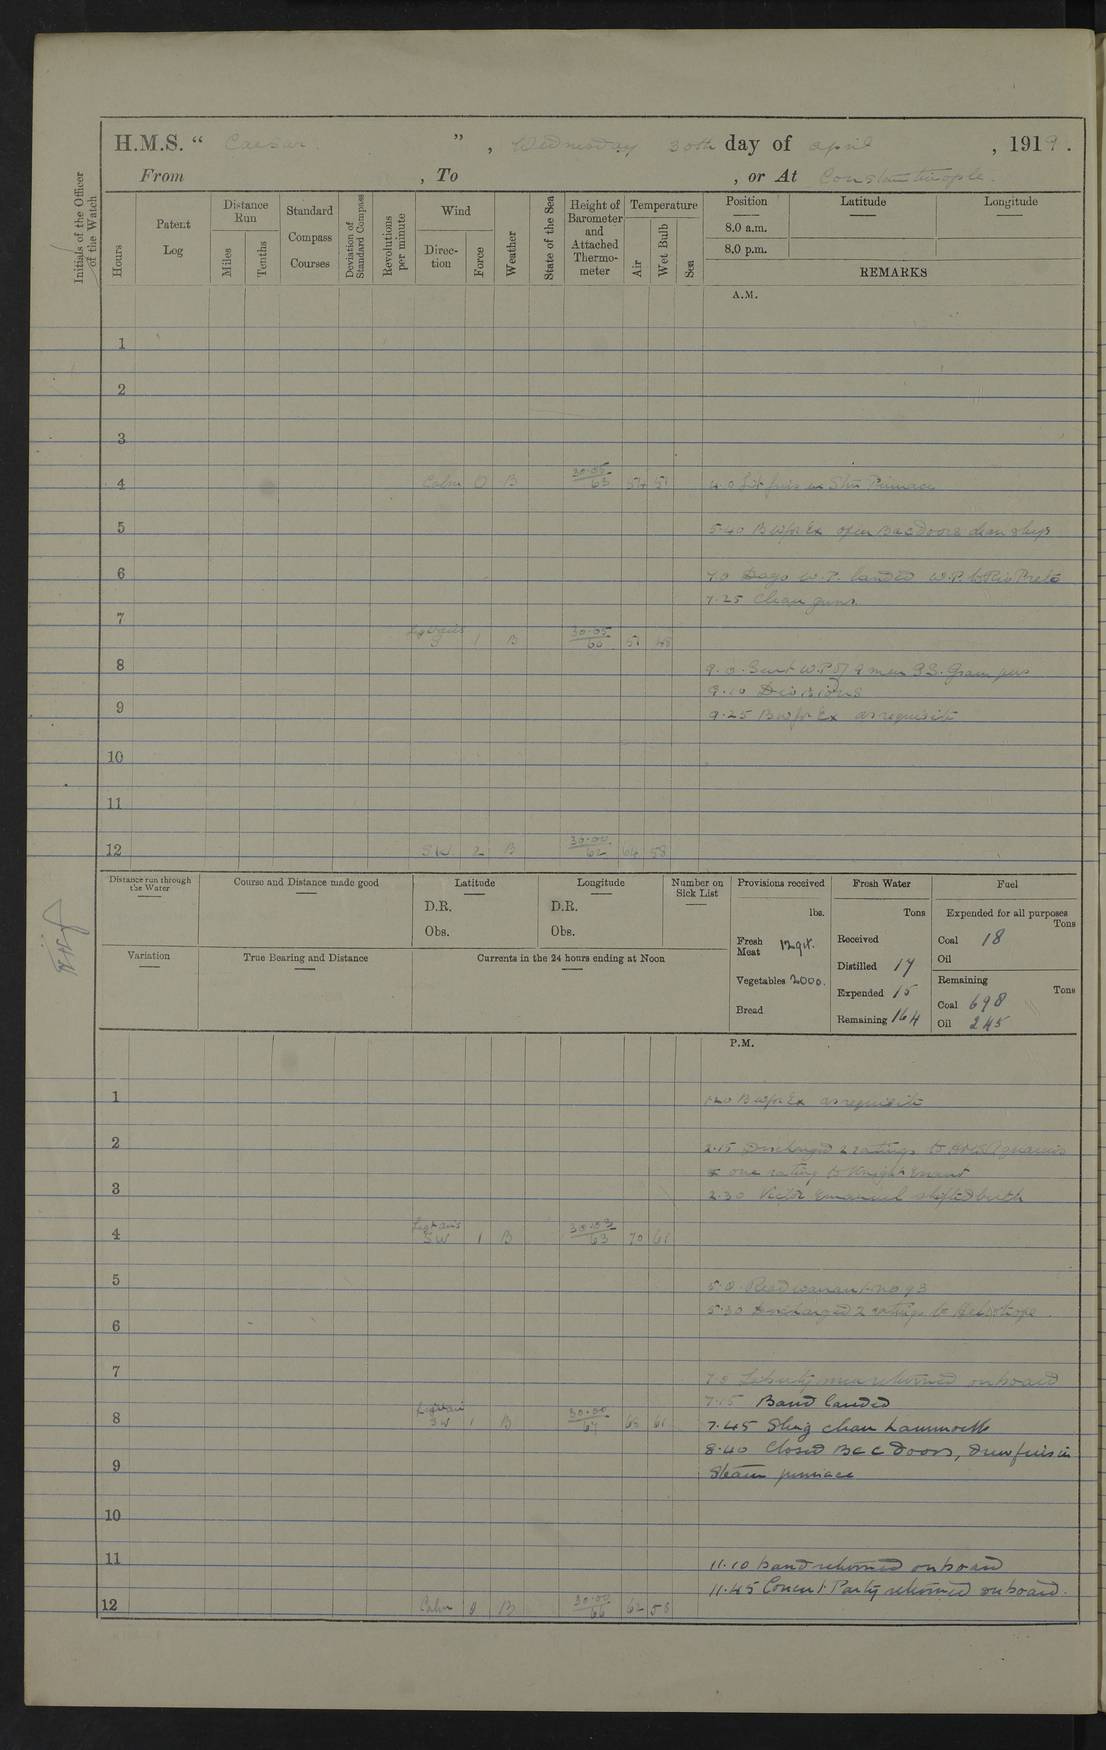 H.M.S. “ Caesar ” , Wednesday 30th day of April , 1919 .
From , To , or At Constantinople.
Initials of the Officer of the Watch
Hours
Patent Log
Distance Run
Miles
Tenths
Standard Compass Courses
Deviation of Standard Compass
Revolutions per minute
Wind
Direction
Force
Weather
State of the Sea
Height of Barometer and Attached Thermometer
Temperature
Air
Wet Bulb
Sea
Position Latitude Longitude
8.0 a.m.
8.0 p.m.
REMARKS
A.M.
1
2
3
4 Calm 0 B 30.05 63 54 51 4.0 Lit fires in Stm Pinnace
5 5.40 Hands open B & C Doors clean ship
6 7.0 Days W.P. landed W.P. to
7.25 Clean guns.
7
Lgt airs 1 B 30.05 60 51 48
8 9.0 Sent W.P. of 9 men
9.10 Divisions
9 9.25 as requisite
10
11
12 SW. 2 B 30.00 62 64 58
Distance run through the Water
Course and Distance made good
Latitude
D.R.
Obs.
Longitude
D.R.
Obs.
Number on Sick List
Provisions received
lbs.
Fresh Meat
Vegetables 2000.
Bread
Fresh Water
Tons
Received
Distilled 17
Expended 15
Remaining 164
Fuel
Expended for all purposes
Tons
Coal 18
Oil
Remaining
Tons
Coal 698
Oil 245
Variation
True Bearing and Distance
Currents in the 24 hours ending at Noon
P.M.
1 1.20 as requisite
2 2.15 Discharged 2 ratings to
& one rating to Knight Errant
3 2.30 Victor Emanuel shifted berth
4 Light airs SW 1 B 30.03 63 70 61
5 5.0 Read warrant No 93
5.30 Discharged 2 ratings to Heliotrope.
6
7 7.0 Liberty men returned onboard
7.15 Band landed
8 Light air SW 1 B 30.00 67 61 7.45 Sling clean hammocks
8.40 Closed B & C Doors, drew fires in
9 Steam pinnace
10
11 11.10 Band returned onboard
11.45 Concert Party returned onboard.
12 Calm 0 B 30.00 66 62 58